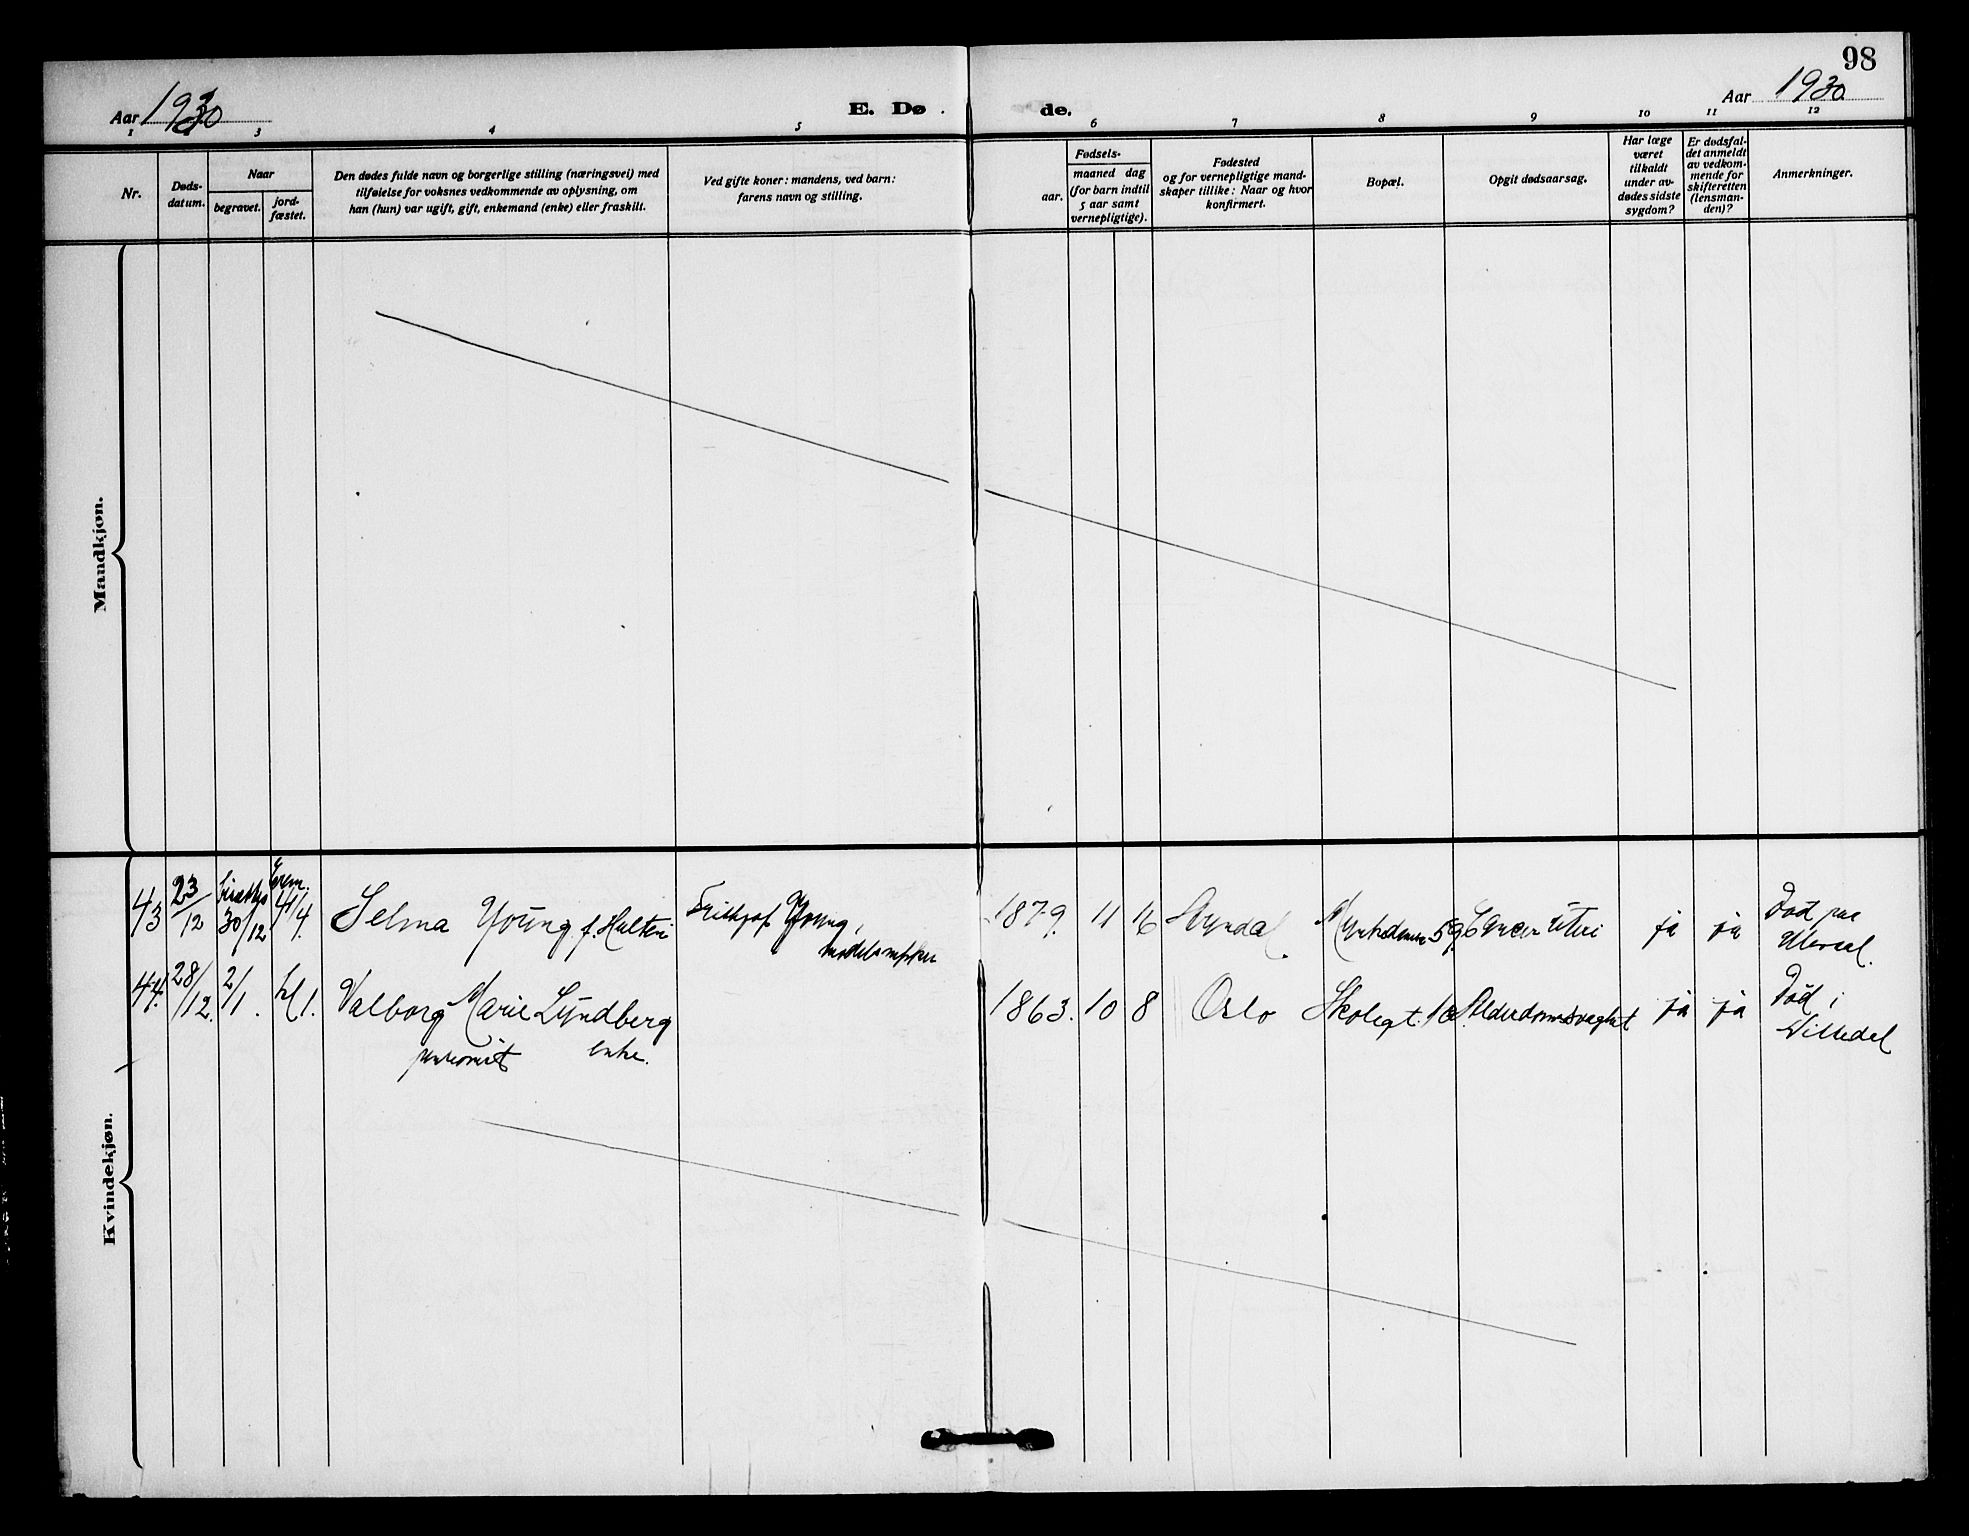 98
Aar 1930
E. Dø
de.
Aar 1930
1
3
4
5
6
7
8
9
10
11
12
Nr.
Døds-
datum.
Naar
begravet.
jord-
fæstet.
Den dødes fulde navn og borgerlige stilling (næringsvei) med
tilføielse for voksnes vedkommende av oplysning, om
han (hun) var ugift, gift, enkemand (enke) eller fraskilt.
Ved gifte koner: mandens, ved barn:
farens navn og stilling.
Fødsels-
aar.
maaned dag
(for barn indtil
5 aar samt
vernepligtige).
Fødested
og for vernepligtige mand-
skaper tillike: Naar og hvor
konfirmert.
Bopæl.
Opgit dødsaarsag.
Har læge
været
tilkaldt
under av-
dødes sidste
sygdom?
Er dødsfal-
det anmeldt
av vedkom-
mende for
skifteretten
(lensman-
den)?
Anmerkninger.
Mandkjøn.
Kvindekjøn.
43
23/12
30/12
Krem.
Selma Young f. Hulten
Frithjof Young,
1879. 11 16
59
Cancer uteri
ja
ja
Død paa
Ullevaal.
44.
28/12.
2/1.
Valborg Marie Lundberg
pensionist enke.
1863. 10 8
Oslo
Skolegt. 10
Alderdomssvaghet
ja
ja
Død i